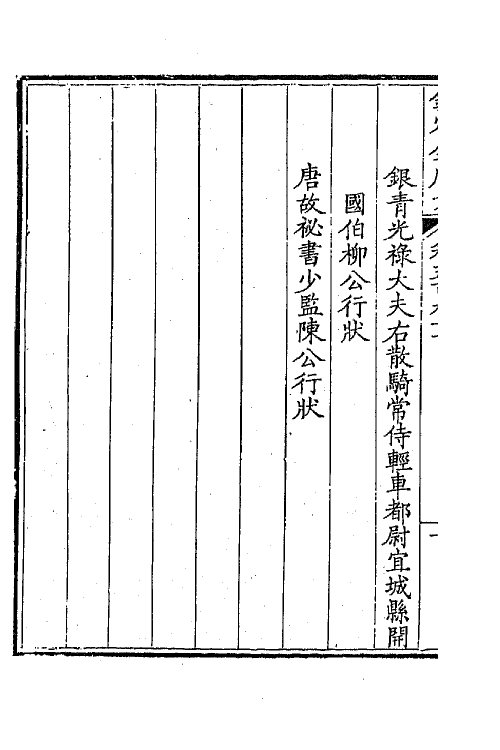 銀青光祿大夫右散騎常侍輕車都尉宜城縣開
國伯柳公行狀
唐故祕書少監陳公行狀